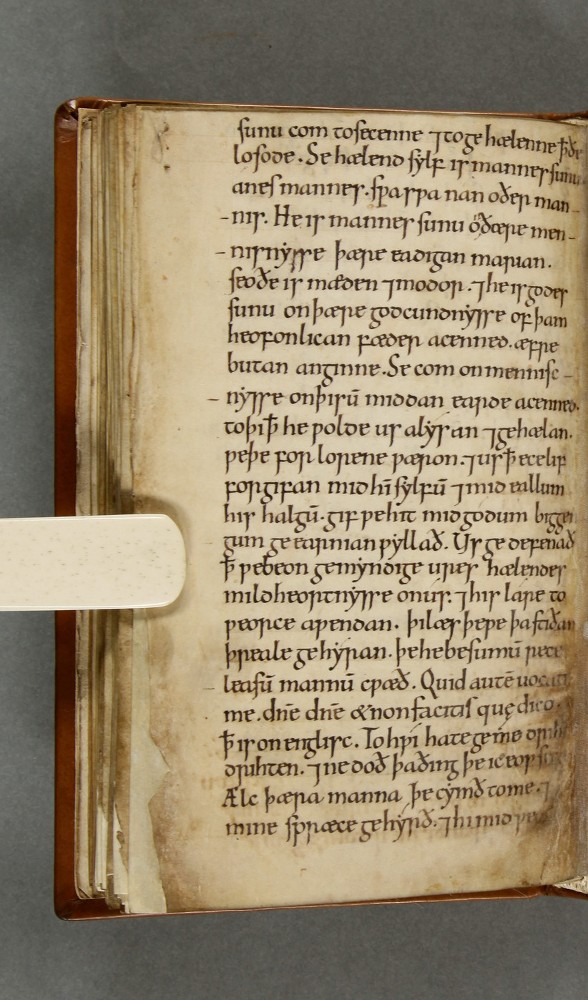 sunu com to secenne ⁊ to ge hælenne ꝥ ðe
losode. Se hælend sylf is mannes sunu
anes mannes. swa swa nan oðer man
-nis. He is mannes sunu ðære men-
-nisnysse þære eadigan marian.
seo ðe is mæden ⁊ modor. ⁊ he is godes
sunu on þære godcundnysse of þam
heofonlican fæder acenned. æfre
butan anginne. Se com on mennisc-
-nysse on þisū middan earde acenned.
to þi ꝥ he wolde us alysan ⁊ gehælan.
we þe for lorene wæron. ⁊ us ꝥ ece lif
forgifan mid hī sylfū ⁊ mid eallum
his halgū. gif we hit mid godum biggen
gum ge earnian wyllað. Us ge dafenað
ꝥ we beon gemyndige ures hælendes
mildheortnysse on us. ⁊ his lare to
weorce awendan. þi læs þe we þa stiðan
þreale gehyran. þe he be sumū rece
leasū mannū cwæð. Quid autē uocatis
me. dn̄e dn̄e & non facitis quę dico.
ꝥ is on englisc. To hwi hatege me drihten
drihten. ⁊ ne doð þa ðing þe ic eow
Ælc þæra manna þe cymð to me. ⁊
mine spræce gehyrð. ⁊ hi mid